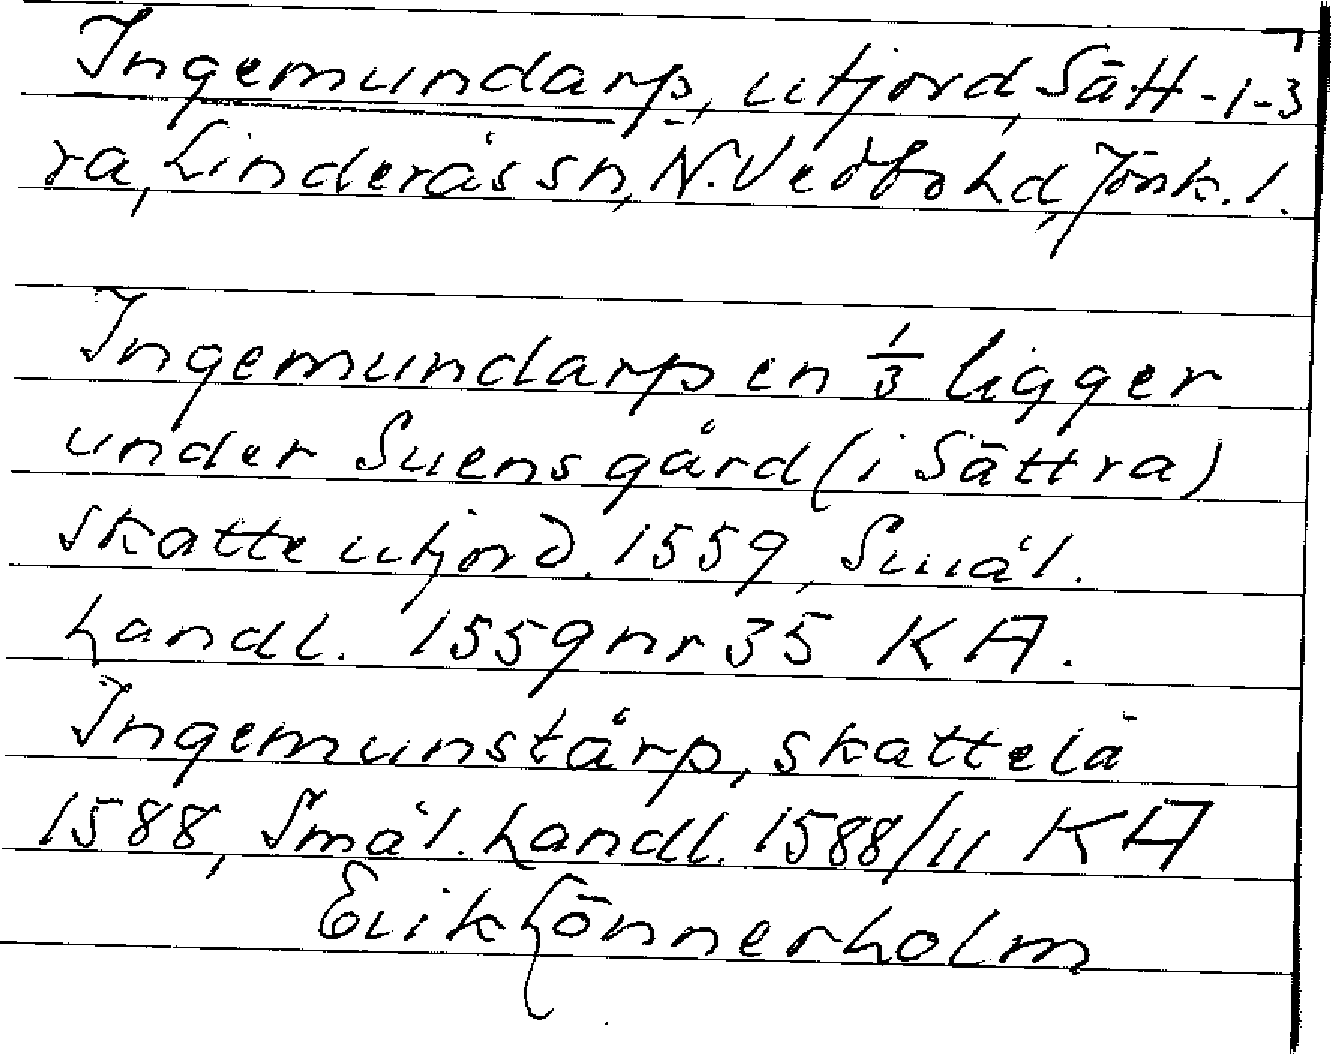 Ingemundarp, utjord, Sätt-1-3
ra, Linderås sn, N. Vedbo hd, Jönk. l.
Ingemundarp en 1/3 ligger
under Suens gård (i Sättra)
skatte utjord. 1559, Smål.
handl. 1559 nr 35 KA.
Ingemunstårp, skattelä
1588, Smål. handl. 1588/11 KA
Erik Lönnerholm